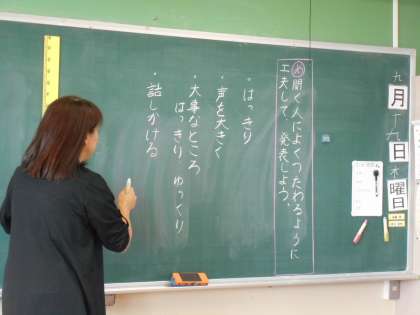 九月十九日木曜日
め聞く人によくつたわるように
工夫して、発表しよう。
・はっきり
・声を大きく
・大事なところ
はっきり ゆっくり
・話しかける